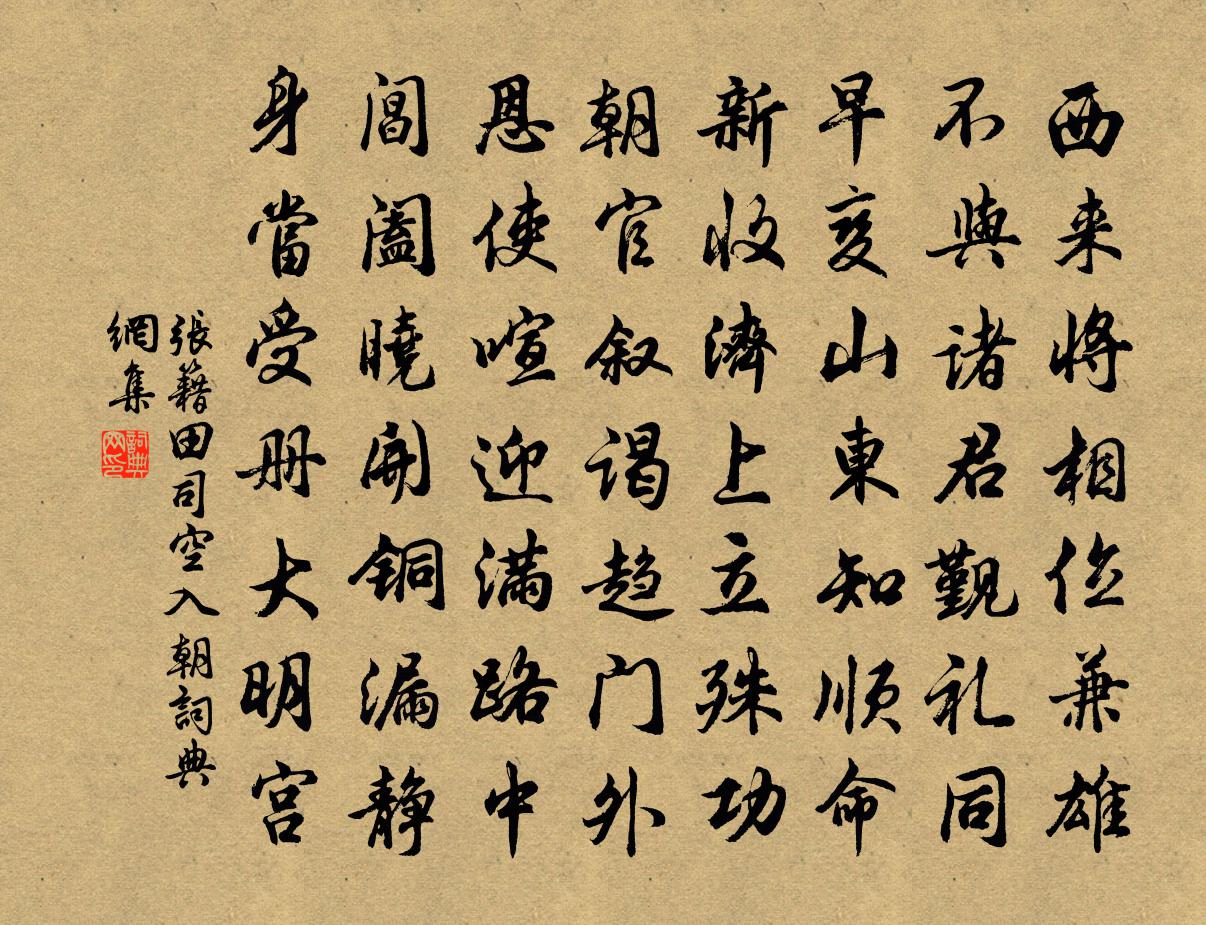 西来将相位兼雄
不與诸君觐礼同
早变山東知顺命
新收濟上立殊功
朝官叙谒趋门外
恩使喧迎满路中
阊阖曉開铜漏静
身當受册大明宫
張籍田司空入朝詞典
網集
詞典
网印